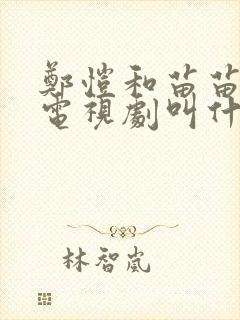 鄭愷和苗苗
電視劇叫什
林智嵐